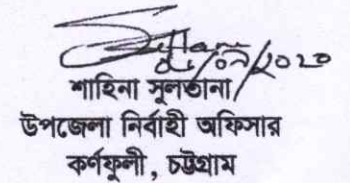 শাহিনা সুলতানা
উপজেলা নির্বাহী অফিসার
কর্ণফুলী, চট্টগ্রাম